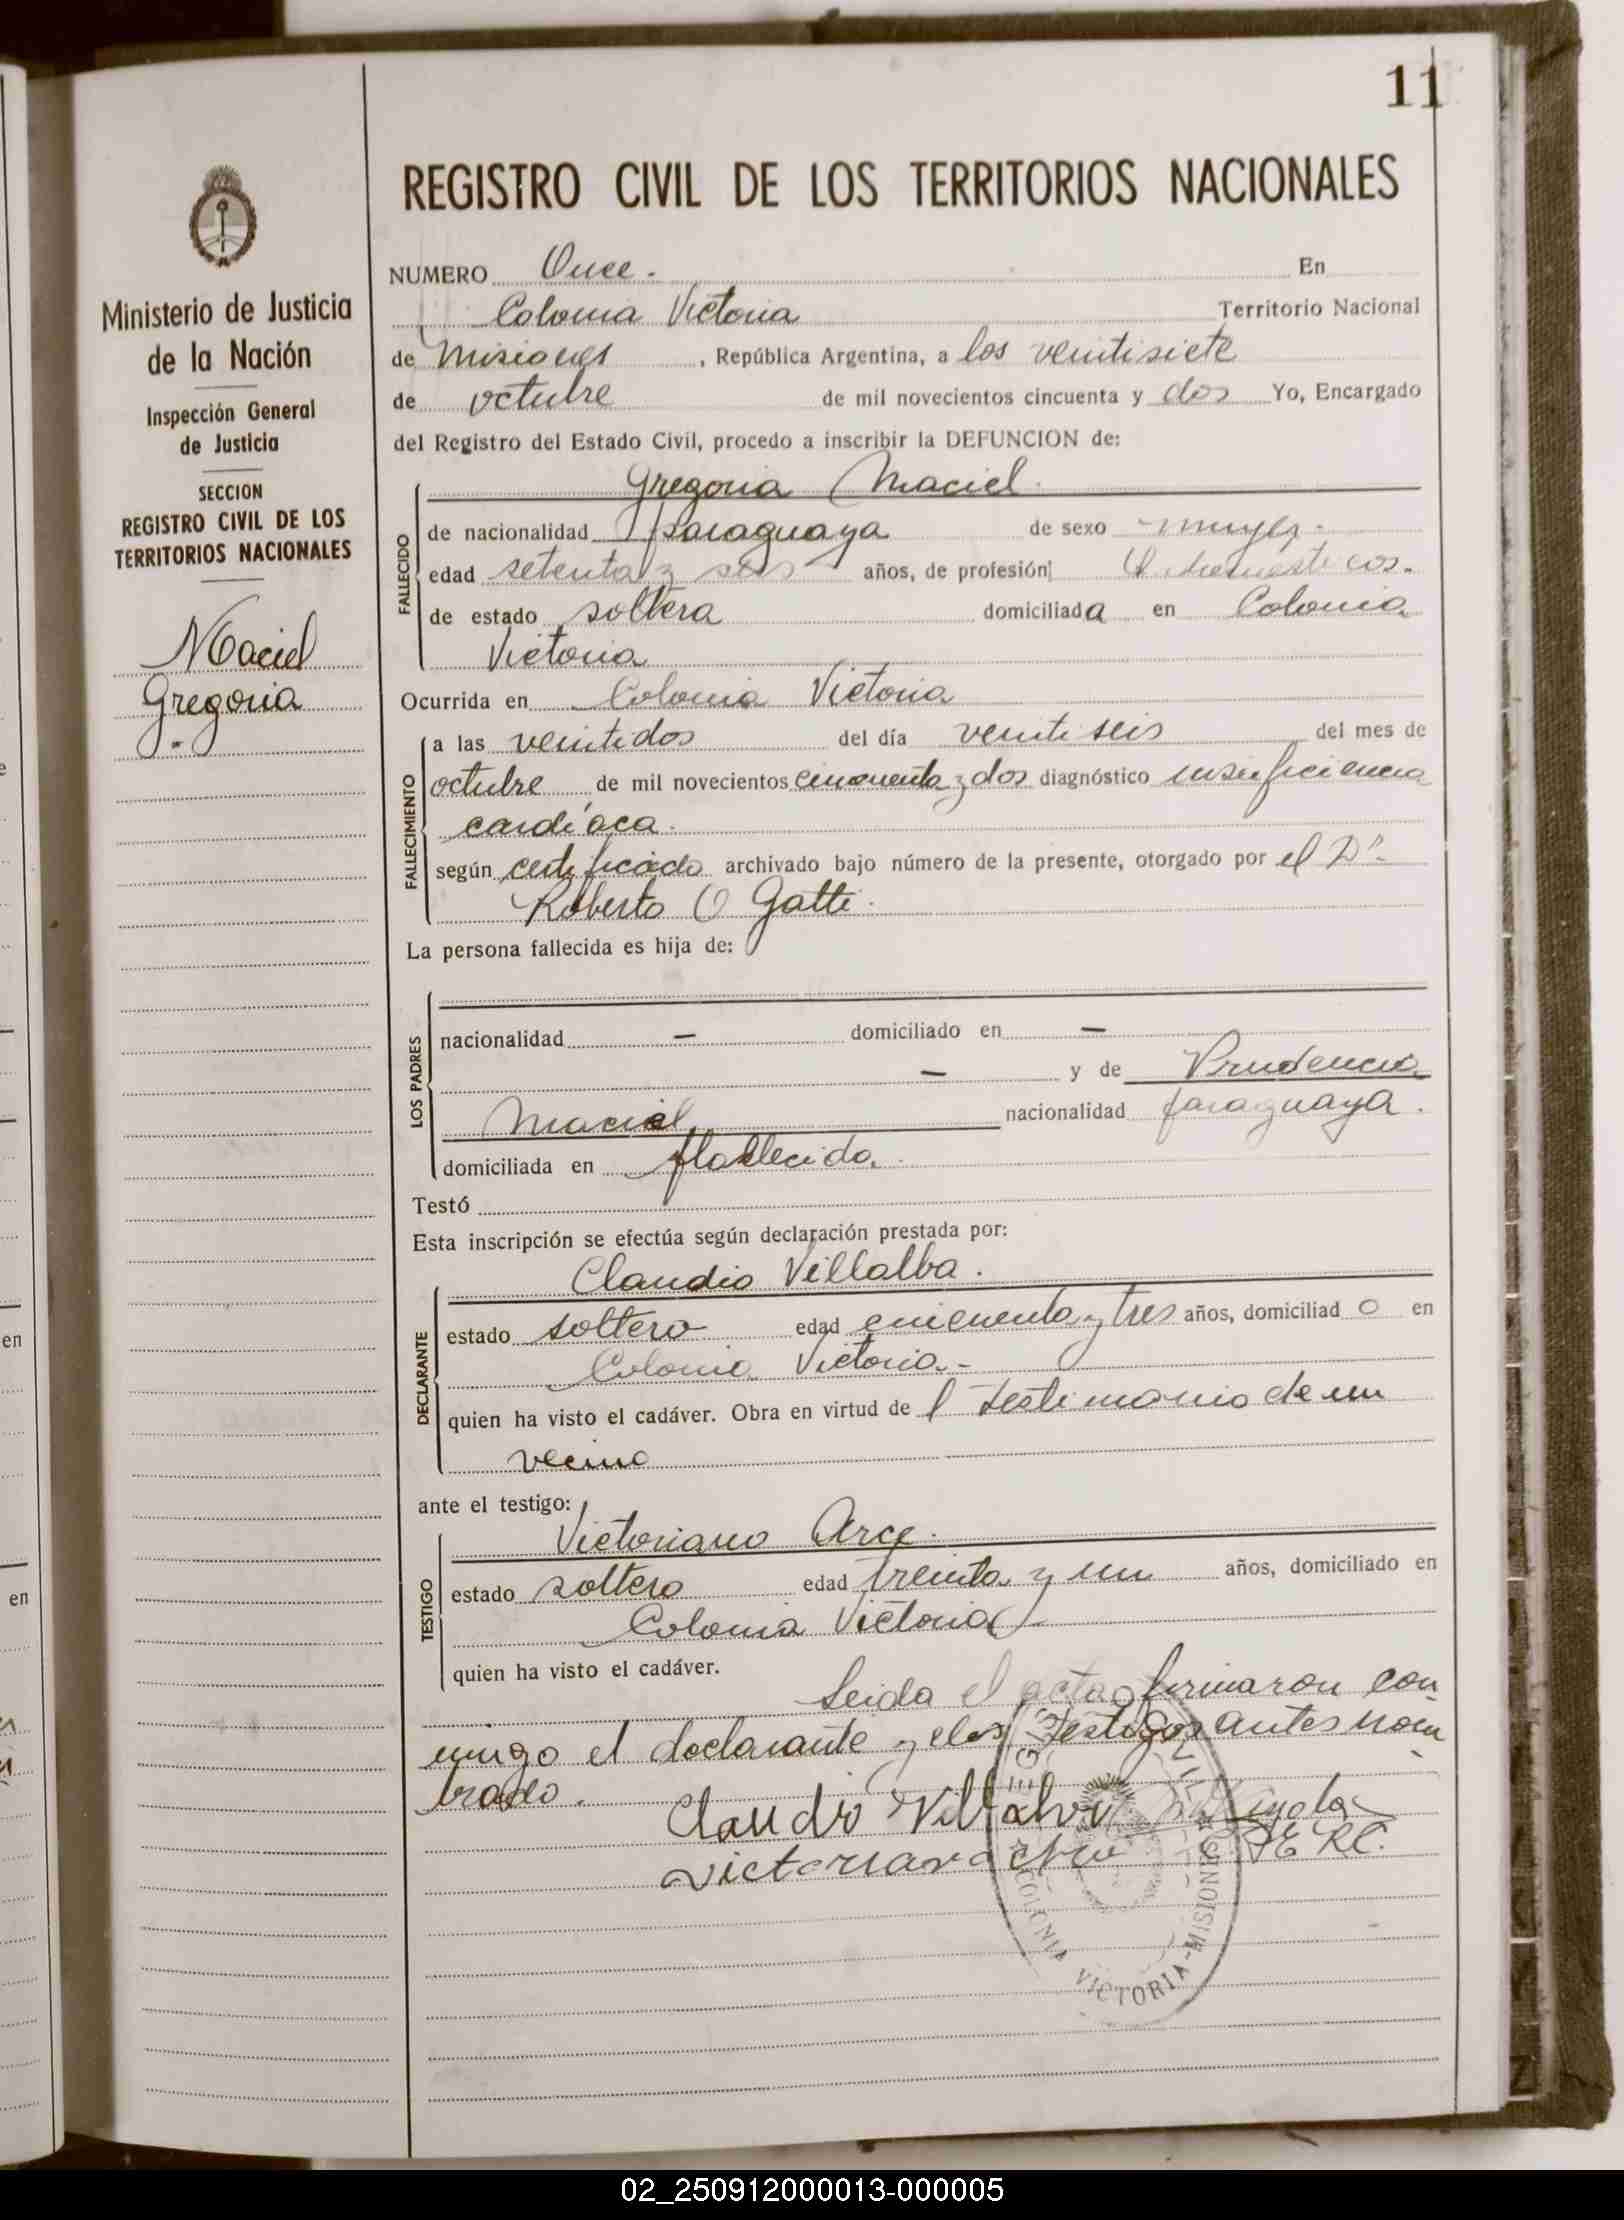 11
REGISTRO CIVIL DE LOS TERRITORIOS NACIONALES
Ministerio de Justicia
de la Nación
Inspección General
de Justicia
SECCION
REGISTRO CIVIL DE LOS
TERRITORIOS NACIONALES
Maciel
Gregoria
NUMERO Once. En
Colonia Victoria Territorio Nacional
de Misiones, República Argentina, a los veintisiete
de octubre de mil novecientos cincuenta y dos Yo, Encargado
del Registro del Estado Civil, procedo a inscribir la DEFUNCION de:
Gregoria Maciel.
FALLECIDO
de nacionalidad paraguaya de sexo mujer.
edad setenta y seis años, de profesión
de estado soltera domiciliada en Colonia
Victoria
Ocurrida en Colonia Victoria
FALLECIMIENTO
a las veintidos del día veintiseis del mes de
octubre de mil novecientos cincuenta y dos diagnóstico insuficiencia
cardíaca.
según certificado archivado bajo número de la presente, otorgado por el Dr.
Roberto O Gatti.
La persona fallecida es hija de:
LOS PADRES
nacionalidad — domiciliado en —
— y de Prudencia
Maciel nacionalidad paraguaya.
domiciliada en
Testó
Esta inscripción se efectúa según declaración prestada por:
Claudio Villalba.
DECLARANTE
estado soltero edad cincuenta y tres años, domiciliado en
Colonia Victoria.-
quien ha visto el cadáver. Obra en virtud del testimonio de un
vecino
ante el testigo:
Victoriano Arce.
TESTIGO
estado soltero edad treinta y un años, domiciliado en
Colonia Victoria
quien ha visto el cadáver.
Leida el acta firmaron con
migo el declarante y el testigo antes nom
brado.
Claudio Villalva
Victoriano Arce E R C.
COLONIA VICTORIA - MISIONES
en
en
02_250912000013-000005